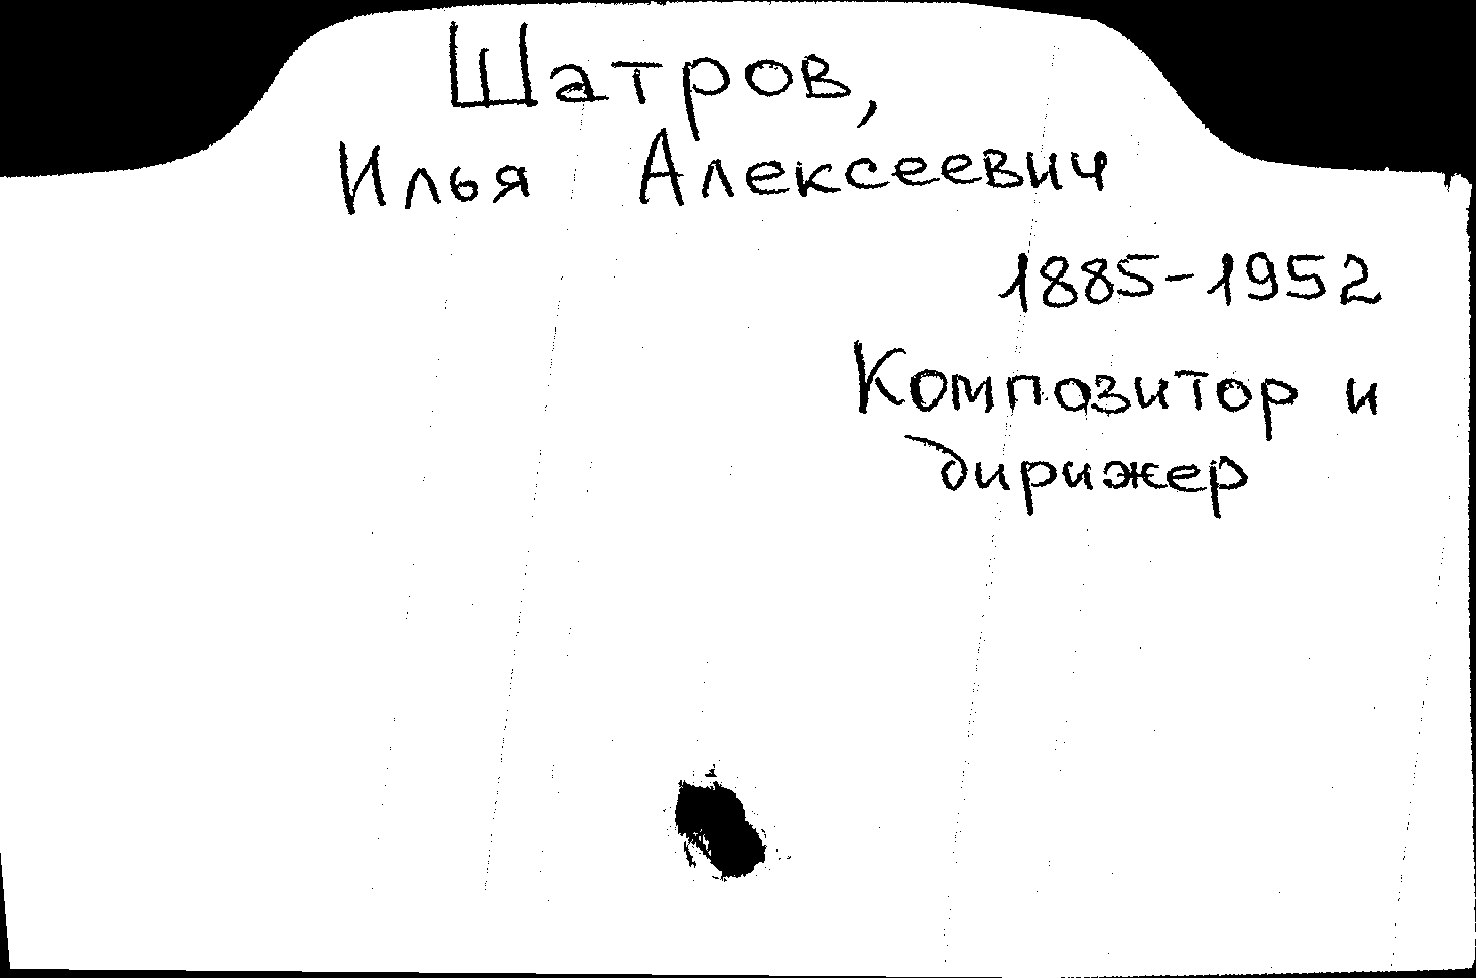 Шатров,
Илья Алексеевич
1885-1952
Композитор и
дирижер